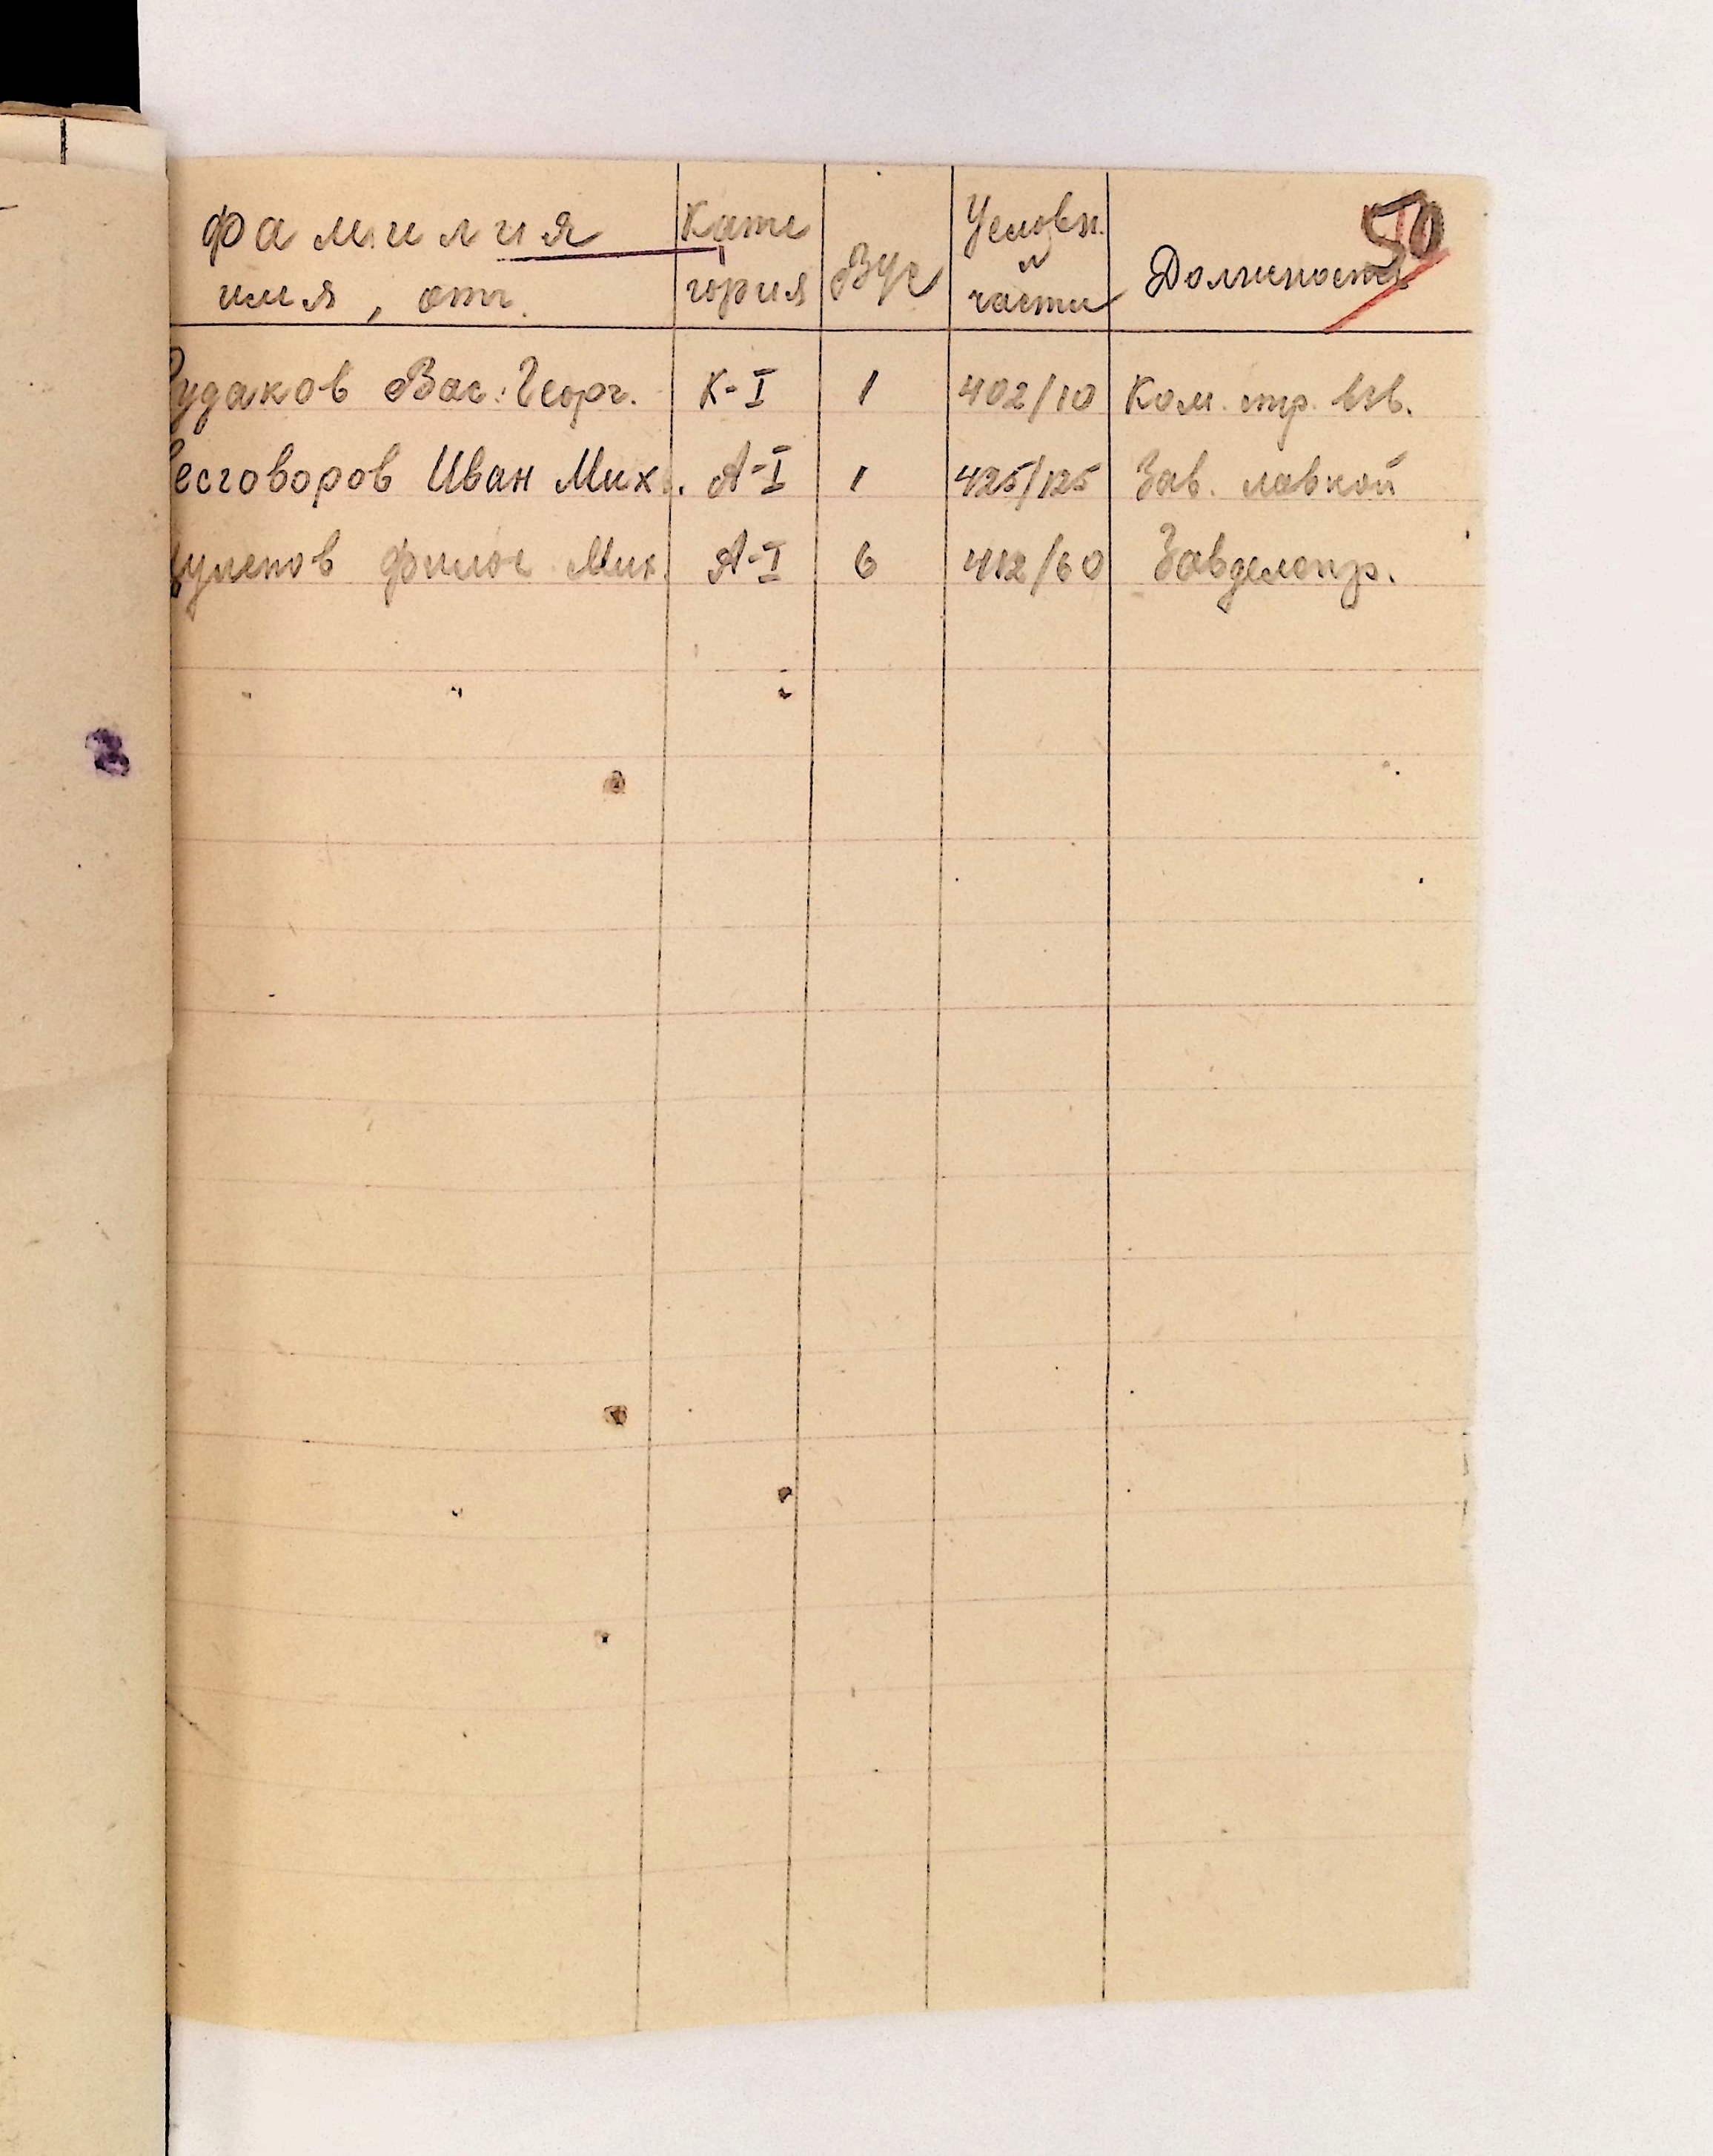 50
Фамилия имя, отч. Кате гория ВУС Условн. № части Должность
Рудаков Вас. Георг. К-I 1 402/10 Ком. стр. взв.
есговоров Иван Мих. А-I 1 425/125 Зав. лавкой
Мих. А-I 6 412/60 Завделопр.